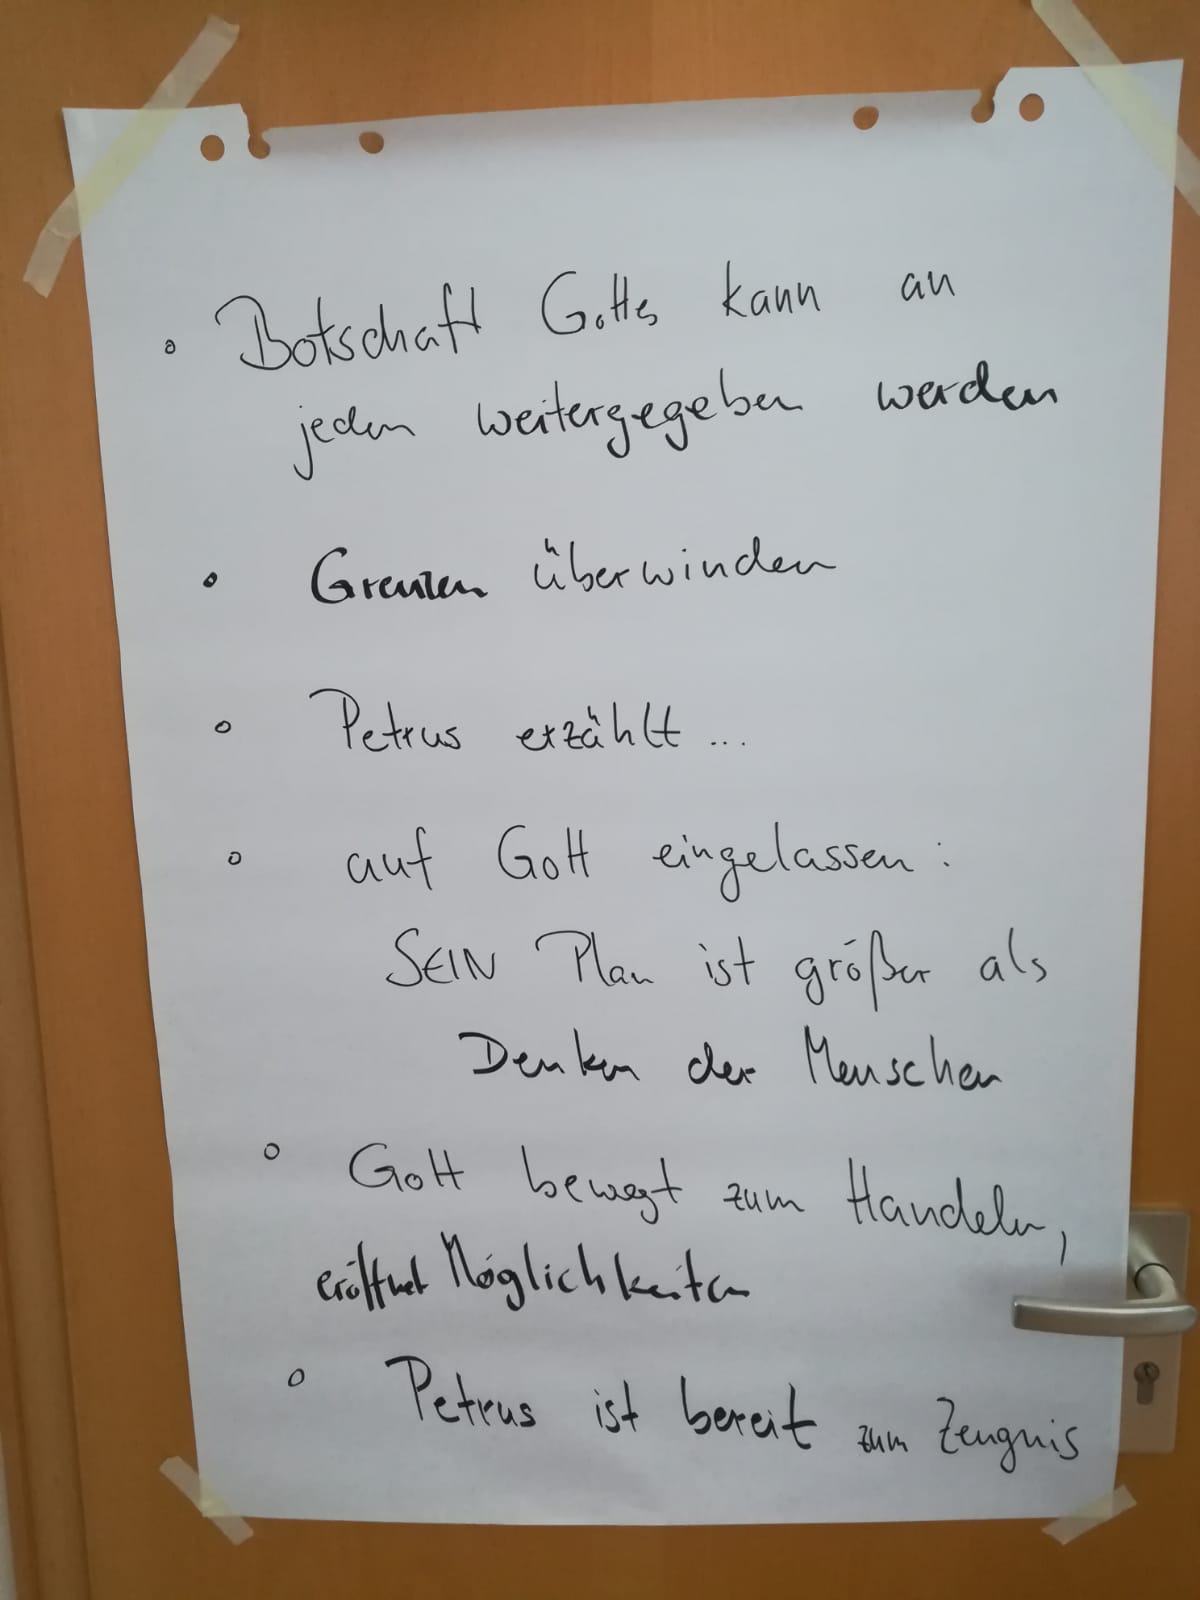 ° Botschaft Gottes kann an
jeden weitergegeben werden
° Grenzen überwinden
° Petrus erzählt ...
° auf Gott eingelassen:
SEIN Plan ist größer als
Denken der Menschen
° Gott bewegt zum Handeln,
eröffnet Möglichkeiten
° Petrus ist bereit zum Zeugnis